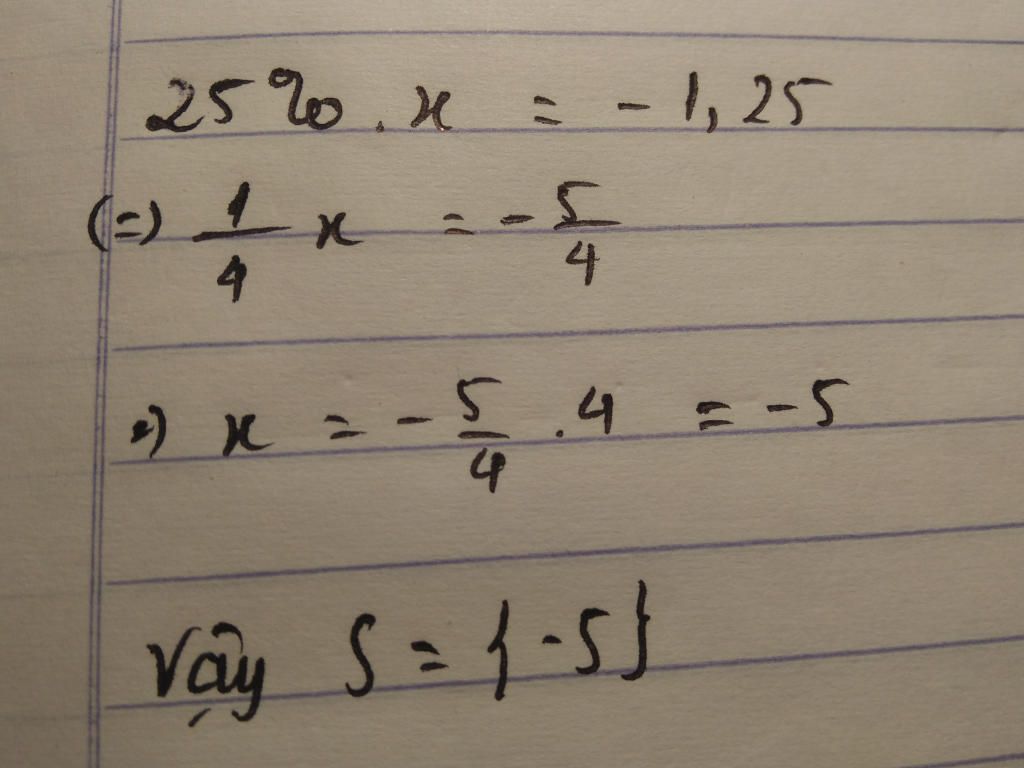 25% . x = - 1,25
(=) 1/4 x = - 5/4
=) x = - 5/4 . 4 = - 5
Vậy S = {-5}